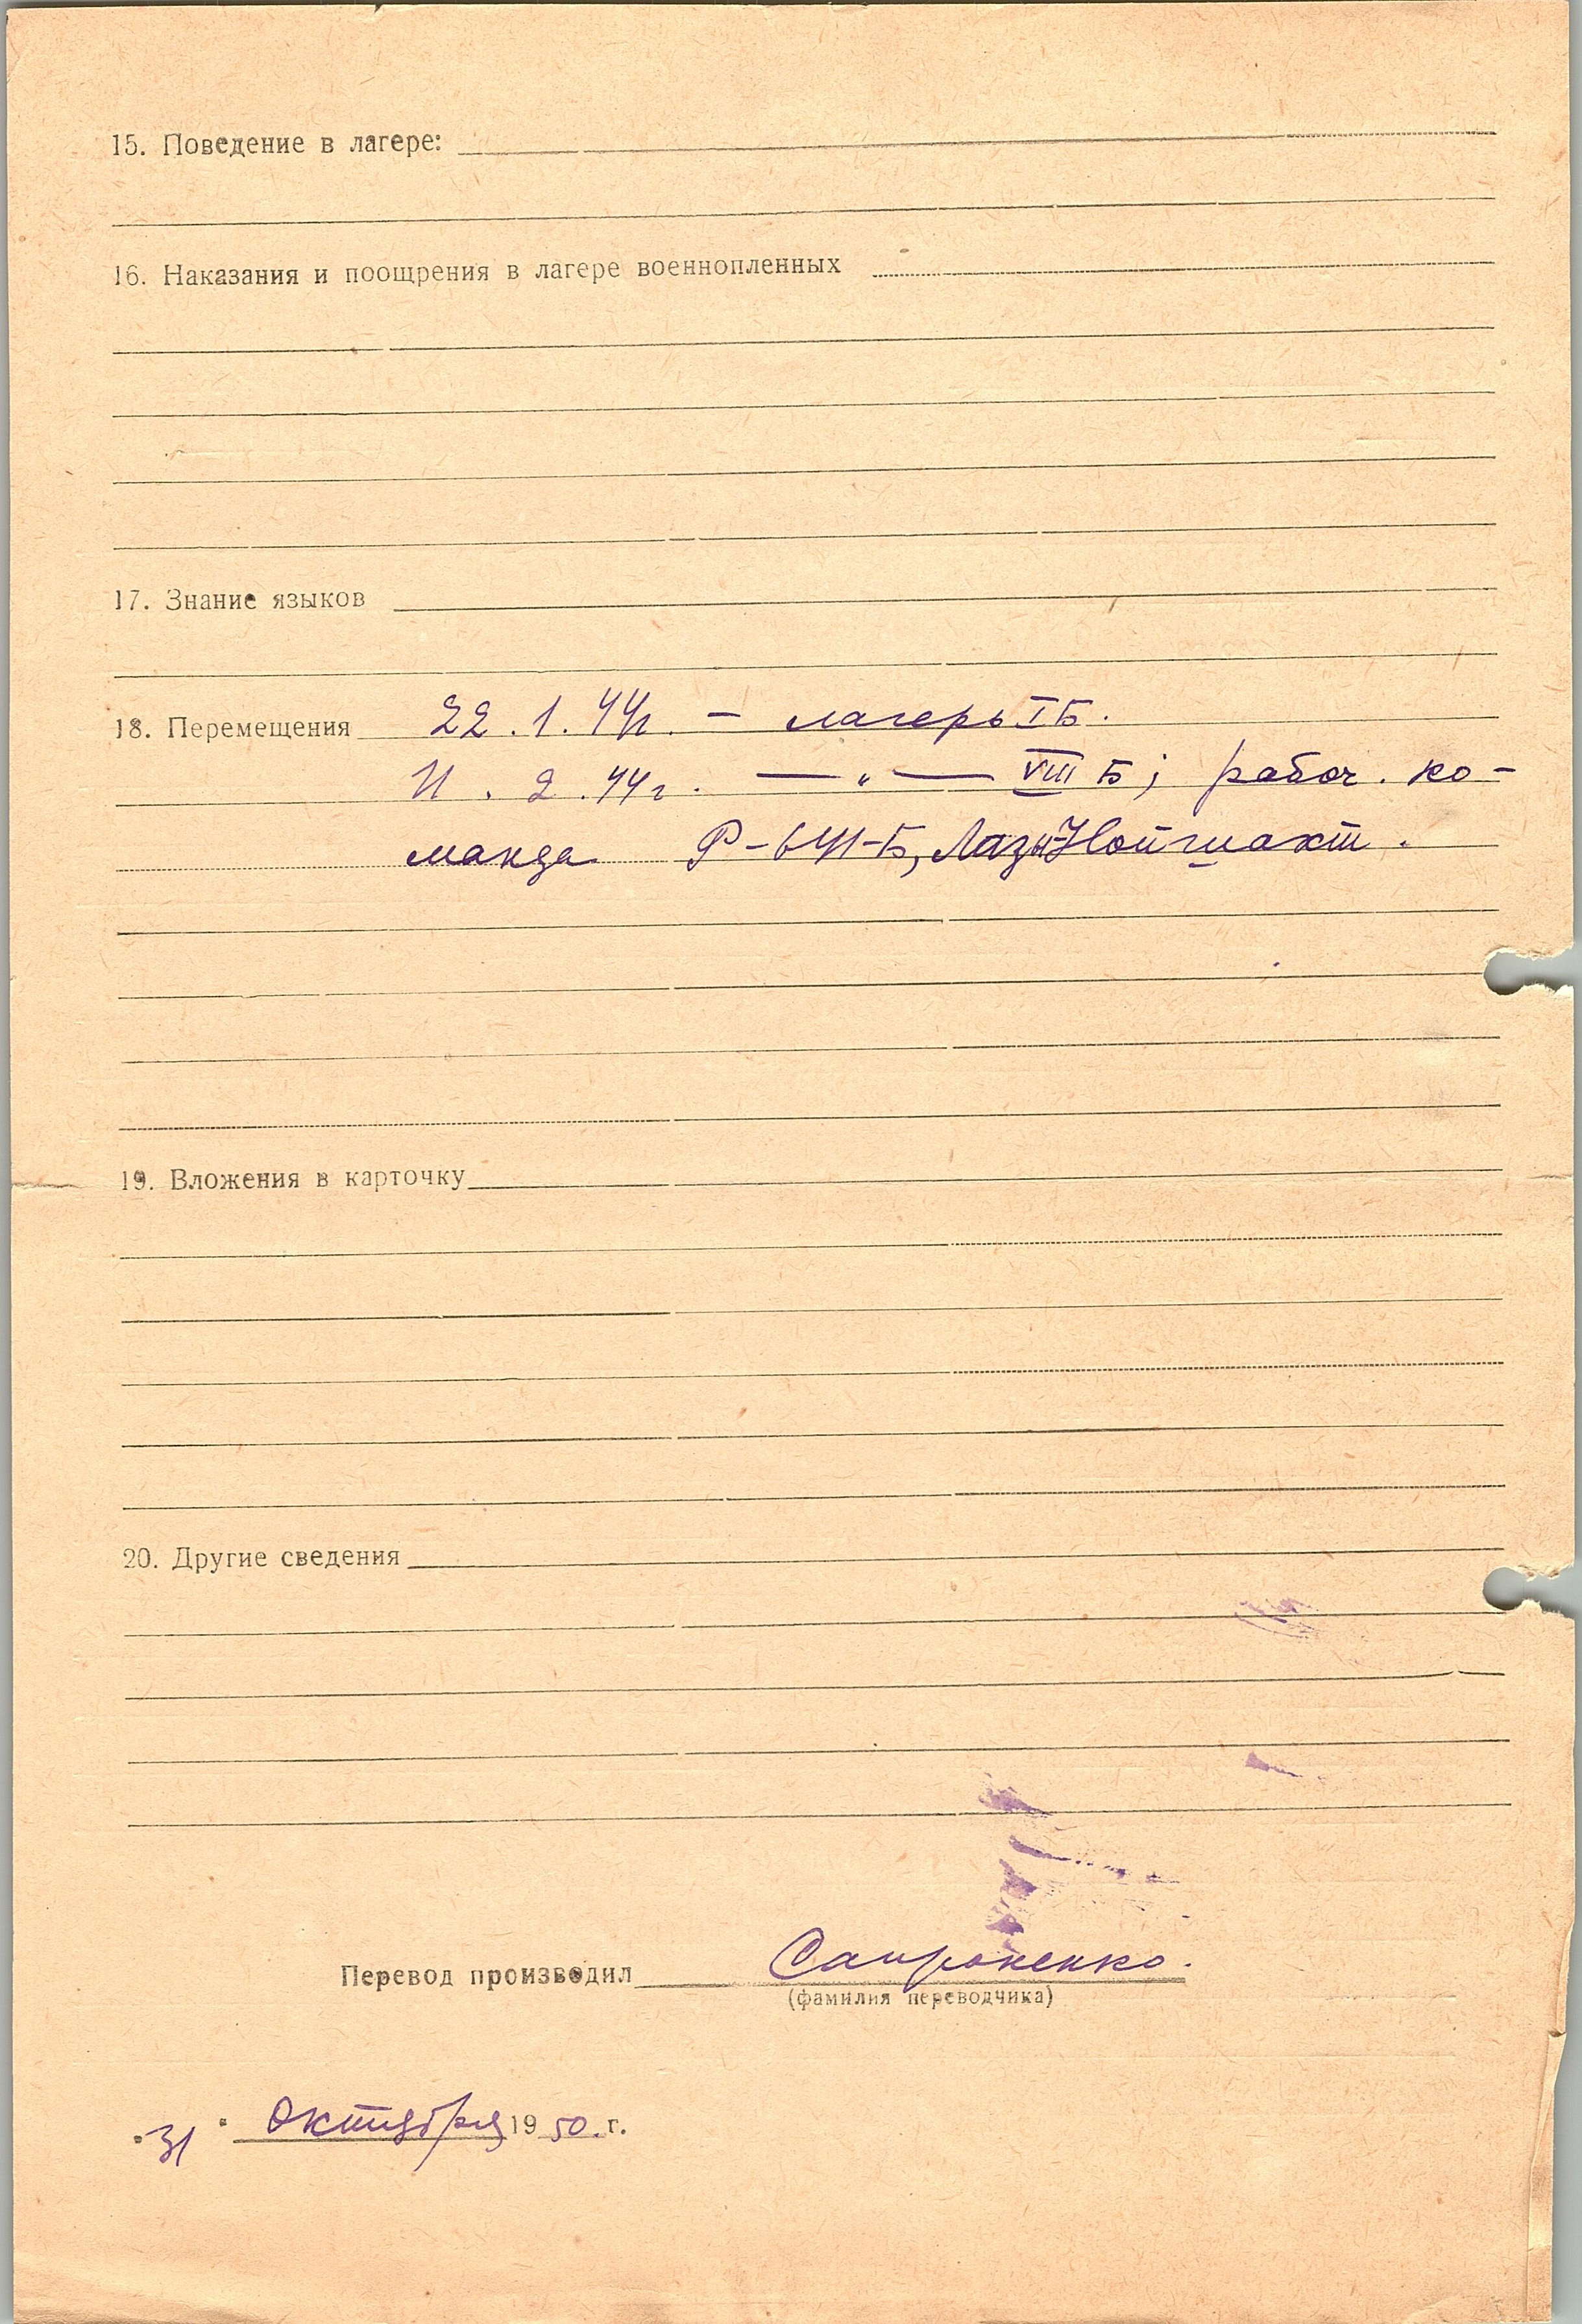 15. Поведение в лагере:
16. Наказания и поощрения в лагере военнопленных
17. Знание языков
18. Перемещения 22.1.44г. - лагерь IБ.
11.2.44г. — „ — VIII Б; рабоч. ко-
манда Р-641-Б, Лазы-Нойшахт.
19. Вложения в карточку
20. Другие сведения
Перевод производил Сапроненко.
(фамилия переводчика)
"31" октября 1950 г.